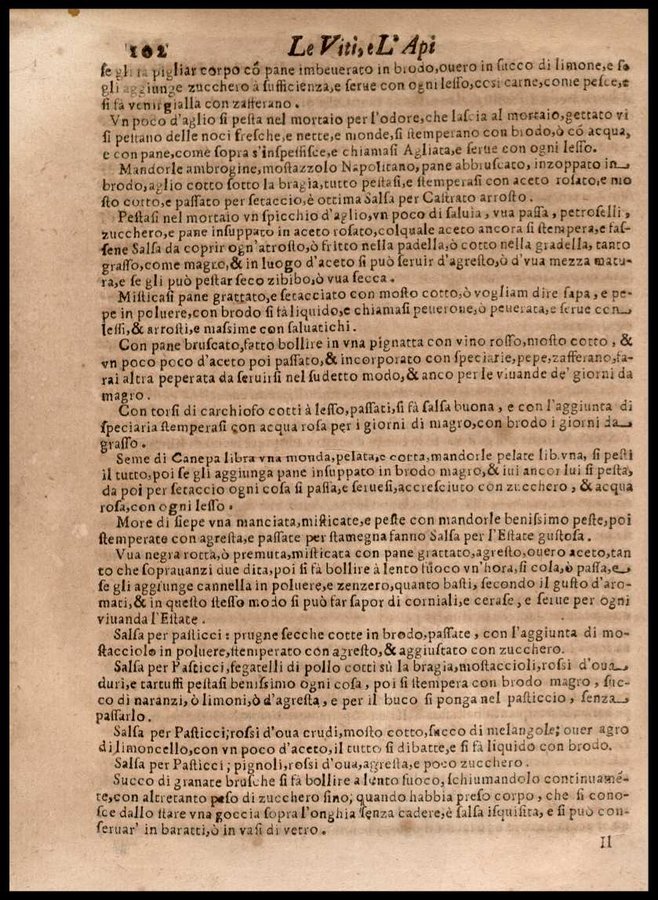 102 Le Viti, e L'Api
se gli fa pigliar corpo cõ pane imbeuerato in brodo,ouero in succo di limone,e se
gli aggiunge zucchero à sufficienza,e serue con ogni lesso,così carne,come pesce,e
si fà venir gialla con zafferano.
Vn poco d'aglio si pesta nel mortaio per l'odore,che lascia al mortaio,gettato vi
si pestano delle noci fresche,e nette,e monde,si stemperano con brodo,ò cõ acqua,
e con pane,come sopra s'inspessisce,e chiamasi Agliata,e serue con ogni lesso.
Mandorle ambrogine,mostazzolo Napolitano,pane abbruscato,inzoppato in
brodo,aglio cotto sotto la bragia,tutto pestasi,e stemperasi con aceto rosato,e mo
sto cotto,e passato per setaccio,è ottima Salsa per Castrato arrosto.
Pestasi nel mortaio vn spicchio d'aglio,vn poco di saluia, vua passa, petroselli,
zucchero,e pane insuppato in aceto rosato,colquale aceto ancora si stempera,e fas-
sene Salsa da coprir ogn'arrosto,ò fritto nella padella,ò cotto nella gradella, tanto
grasso,come magro,& in luogo d'aceto si può seruir d'agresto,ò d'vua mezza matu-
ra,e se gli può pestar seco zibibo,ò vua secca.
Misticasi pane grattato,e setacciato con mosto cotto,ò vogliam dire sapa, e pe-
pe in poluere,con brodo si fà liquido,e chiamasi peuerone,ò peuerata,e serue con
lessi,& arrosti,e massime con saluatichi.
Con pane bruscato,fatto bollire in vna pignatta con vino rosso,mosto cotto, &
vn poco poco d'aceto poi passato,& incorporato con speciarie,pepe,zafferano,fa-
rai altra peperata da seruirsi nel sudetto modo,& anco per le viuande de' giorni da
magro.
Con torsi di carchiofo cotti à lesso,passati,si fà salsa buona, e con l'aggiunta di
speciaria stemperasi con acqua rosa per i giorni di magro,con brodo i giorni da
grasso.
Seme di Canepa libra vna monda,pelata,e cotta,mandorle pelate lib.vna, si pesti
il tutto,poi se gli aggiunga pane insuppato in brodo magro,& iui ancor lui si pesta,
da poi per setaccio ogni cosa si passa,e seruesi,accresciuto con zucchero, & acqua
rosa,con ogni lesso.
More di siepe vna manciata,misticate,e peste con mandorle benissimo peste,poi
stemperate con agresta,e passate per stamegna fanno Salsa per l'Estate gustosa.
Vua negra rotta,ò premuta,misticata con pane grattato,agresto,ouero aceto,tan
to che soprauanzi due dita,poi si fà bollire à lento fuoco vn'hora,si cola,ò passa,e
se gli aggiunge cannella in poluere,e zenzero,quanto basti, secondo il gusto d'aro-
mati,& in questo stesso modo si può far sapor di corniali,e cerase, e serue per ogni
viuanda l'Estate.
Salsa per pasticci: prugne secche cotte in brodo,passate, con l'aggiunta di mo-
stacciolo in poluere,stemperato con agresto,& aggiustato con zucchero.
Salsa per Pasticci,fegatelli di pollo cotti sù la bragia,mostaccioli,rossi d'oua
duri,e tartuffi pestasi benissimo ogni cosa, poi si stempera con brodo magro, suc-
co di naranzi, ò limoni,ò d'agresta, e per il buco si ponga nel pasticcio, senza
passarlo.
Salsa per Pasticci;rossi d'oua crudi,mosto cotto,succo di melangole; ouer agro
di limoncello,con vn poco d'aceto,il tutto si dibatte,e si fà liquido con brodo.
Salsa per Pasticci; pignoli,rossi d'oua,agresta,e poco zucchero.
Succo di granate brusche si fà bollire a lento fuoco,schiumandolo continuamẽ-
te,con altretanto peso di zucchero fino; quando habbia preso corpo, che si cono-
sce dallo stare vna goccia sopra l'onghia senza cadere,è salsa isquisita, e si può con-
seruar' in baratti,ò in vasi di vetro.
Il